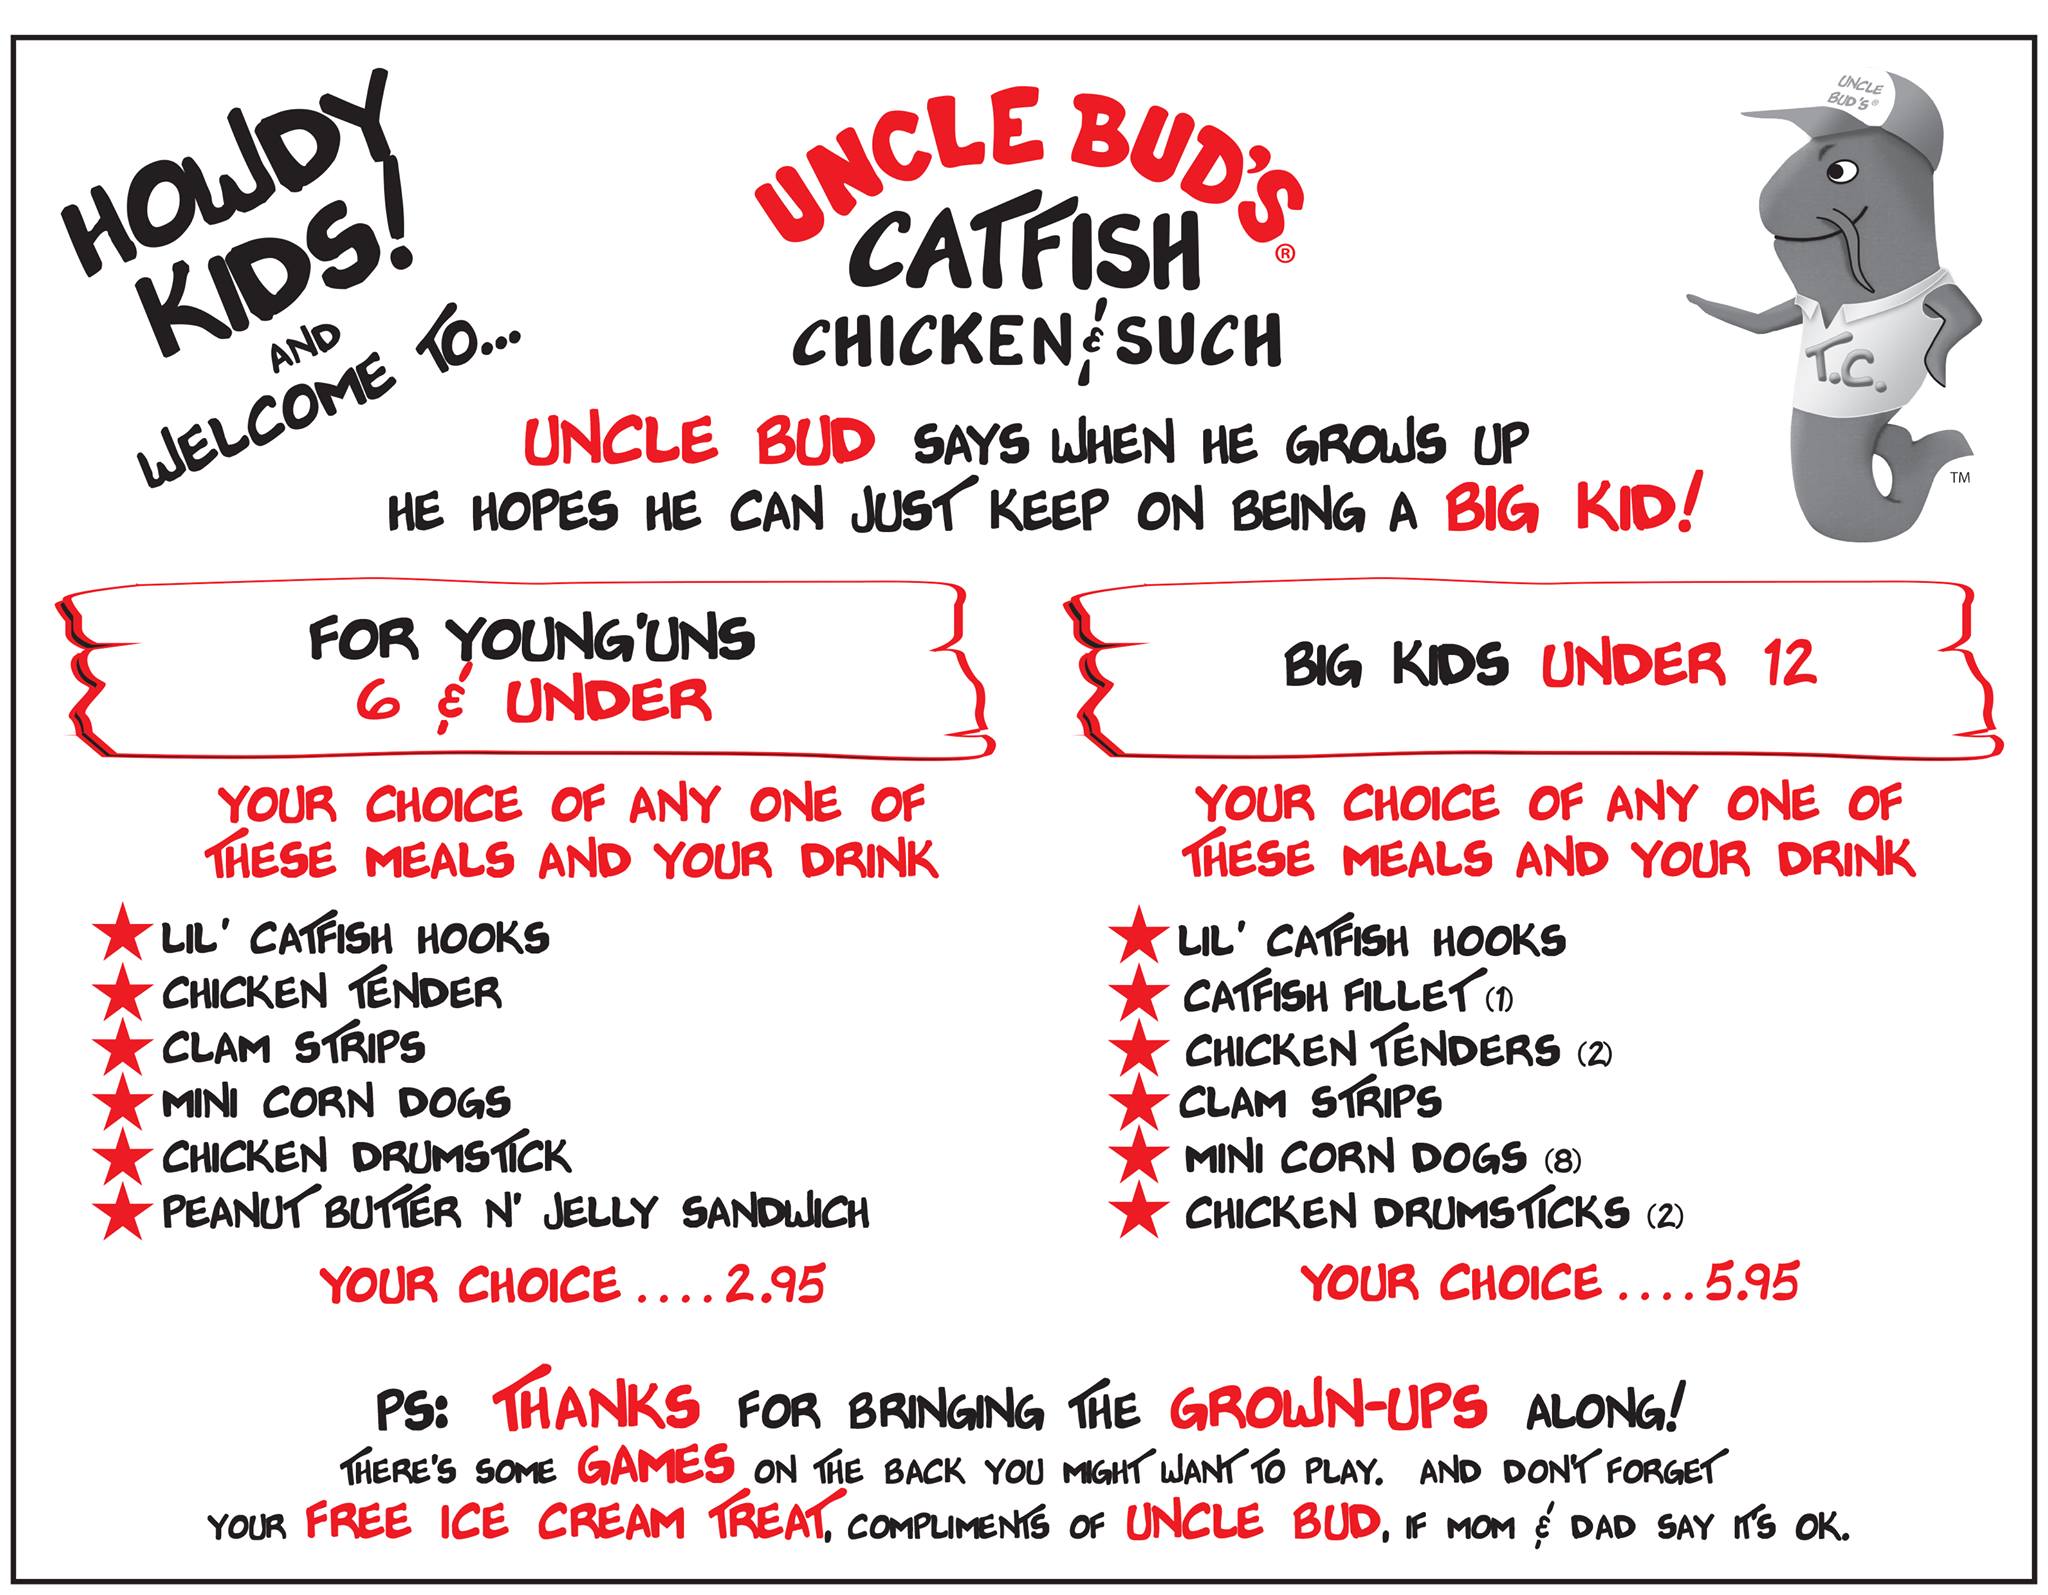 HOWDY
KIDS!
AND
WELCOME TO...
UNCLE BUD'S®
CATFISH
CHICKEN & SUCH
UNCLE BUD'S®
T.C.
TM
UNCLE BUD SAYS WHEN HE GROWS UP
HE HOPES HE CAN JUST KEEP ON BEING A BIG KID!
FOR YOUNG'UNS
6 & UNDER
YOUR CHOICE OF ANY ONE OF
THESE MEALS AND YOUR DRINK
LIL' CATFISH HOOKS
CHICKEN TENDER
CLAM STRIPS
MINI CORN DOGS
CHICKEN DRUMSTICK
PEANUT BUTTER N' JELLY SANDWICH
YOUR CHOICE ....2.95
BIG KIDS UNDER 12
YOUR CHOICE OF ANY ONE OF
THESE MEALS AND YOUR DRINK
LIL' CATFISH HOOKS
CATFISH FILLET (1)
CHICKEN TENDERS (2)
CLAM STRIPS
MINI CORN DOGS (8)
CHICKEN DRUMSTICKS (2)
YOUR CHOICE ....5.95
PS: THANKS FOR BRINGING THE GROWN-UPS ALONG!
THERE'S SOME GAMES ON THE BACK YOU MIGHT WANT TO PLAY. AND DON'T FORGET
YOUR FREE ICE CREAM TREAT, COMPLIMENTS OF UNCLE BUD, IF MOM & DAD SAY IT'S OK.